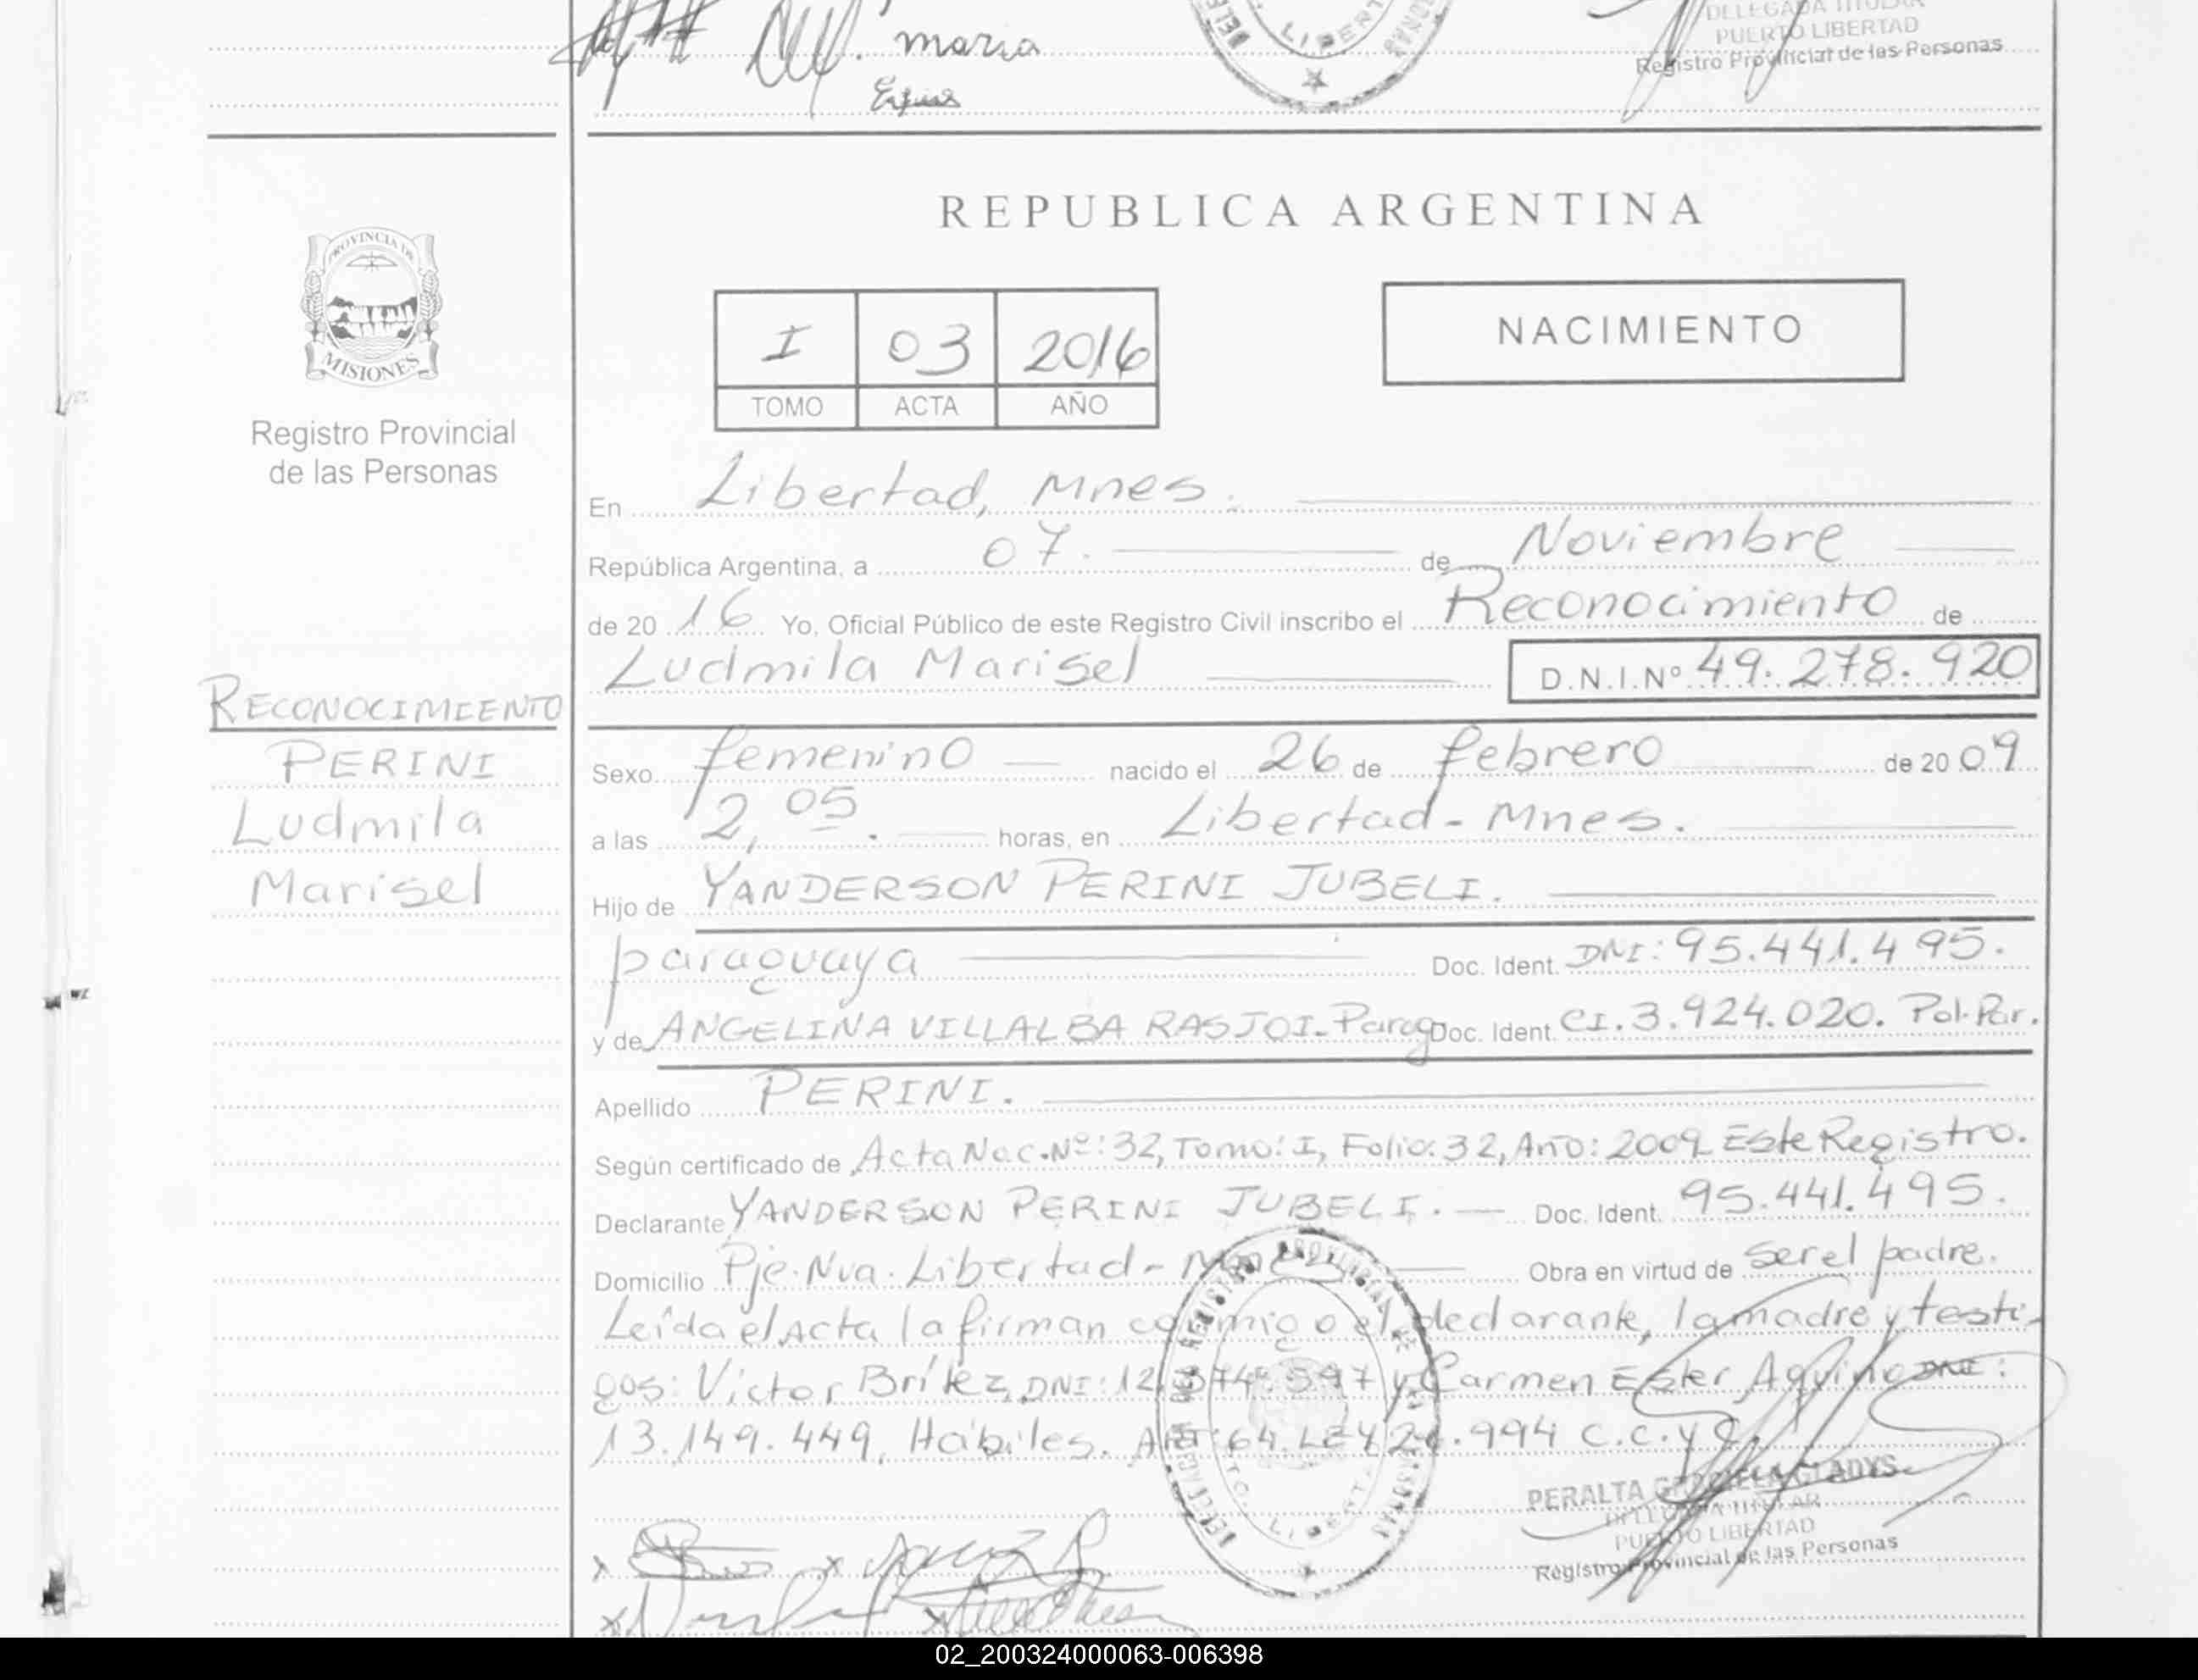 maria
LIBERT
DELEGADA TITULAR
PUERTO LIBERTAD
Registro Provincial de las Personas
PROVINCIA DE
MISIONES
Registro Provincial
de las Personas
REPUBLICA ARGENTINA
I 03 2016
TOMO ACTA AÑO
NACIMIENTO
En Libertad, Mnes.
República Argentina, a 07. de Noviembre
de 20 16 Yo, Oficial Público de este Registro Civil inscribo el Reconocimiento de
Ludmila Marisel D.N.I.Nº 49.278.920
RECONOCIMIENTO
PERINI
Ludmila
Marisel
Sexo femenino nacido el 26 de febrero de 20 09
a las 2,05. horas, en Libertad - Mnes.
Hijo de YANDERSON PERINI JUBELI.
paraguaya Doc. Ident. DNI: 95.441.495.
y de ANGELINA VILLALBA RASJOI - Parag Doc. Ident. CI. 3.924.020. Pol. Par.
Apellido PERINI.
Según certificado de Acta Nac. Nº: 32, Tomo: I, Folio: 32, Año: 2009 Este Registro.
Declarante YANDERSON PERINI JUBELI. Doc. Ident. 95.441.495.
Domicilio Pje. Nva. Libertad - Mnes Obra en virtud de ser el padre.
Leída el Acta la firman conmigo el declarante, la madre y testi-
gos: Víctor Brítez, DNI: 12.374.597 y Carmen Ester Aquino DNI:
13.149.449, Hábiles. Art: 64 LEY 26.994 C.C.y C.
PERALTA GRACIELA GLADYS
DELEGADA TITULAR
PUERTO LIBERTAD
Registro Provincial de las Personas
02_200324000063-006398